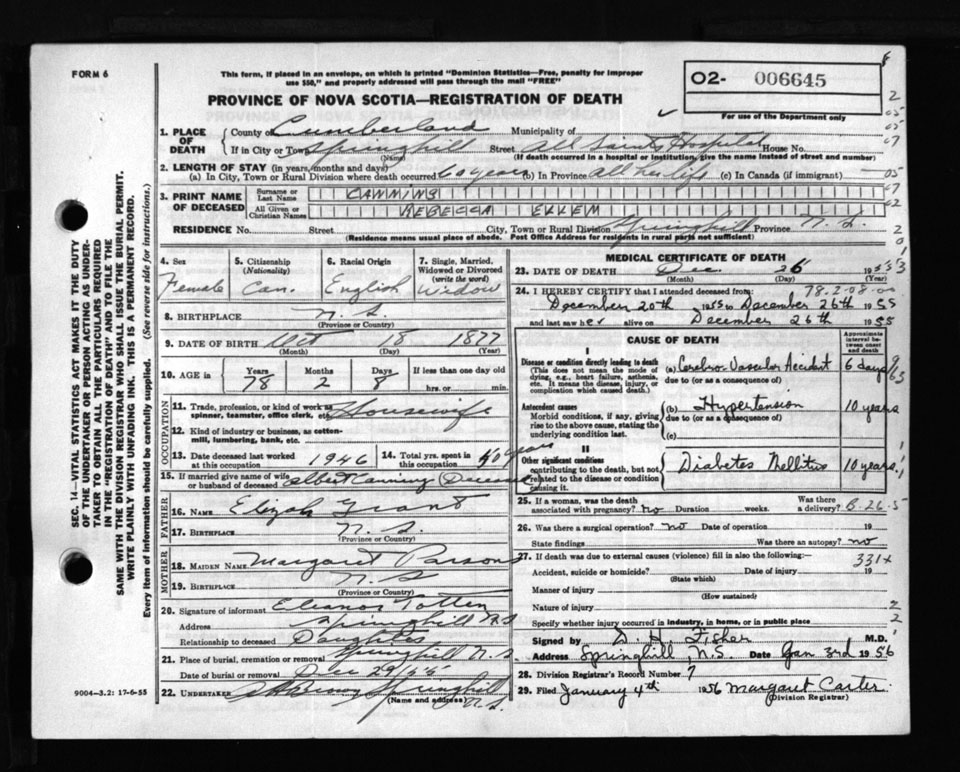 FORM 6
This form, if placed in an envelope, on which is printed "Dominion Statistics—Free, penalty for improper
use $50," and properly addressed will pass through the mail "FREE"
O2- 006645
For use of the Department only
PROVINCE OF NOVA SCOTIA—REGISTRATION OF DEATH
1. PLACE OF DEATH
County of Cumberland Municipality of
If in City or Town Springhill Street All Saints Hospital House No.
(Name) (If death occurred in a hospital or institution, give the name instead of street and number)
2. LENGTH OF STAY (in years, months and days)
(a) In City, Town or Rural Division where death occurred 60 years (b) In Province All her life (c) In Canada (if immigrant)
3. PRINT NAME OF DECEASED
Surname or Last Name CANNING
All Given or Christian Names REBECCA ELLEN
RESIDENCE No. Street City, Town or Rural Division Springhill Province N.S.
(Residence means usual place of abode. Post Office Address for residents in rural parts not sufficient)
4. Sex Female
5. Citizenship (Nationality) Can.
6. Racial Origin English
7. Single, Married, Widowed or Divorced (write the word) Widow
8. BIRTHPLACE N.S.
(Province or Country)
9. DATE OF BIRTH Oct 18 1877
(Month) (Day) (Year)
10. AGE in Years 78 Months 2 Days 8 If less than one day old
hrs. or min.
OCCUPATION
11. Trade, profession, or kind of work as spinner, teamster, office clerk, etc. Housewife
12. Kind of industry or business, as cotton-mill, lumbering, bank, etc.
13. Date deceased last worked at this occupation 1946
14. Total yrs. spent in this occupation 40 years
15. If married give name of wife or husband of deceased Albert Canning (Deceased)
FATHER
16. NAME Elizah Grant
17. BIRTHPLACE N.S.
(Province or Country)
MOTHER
18. MAIDEN NAME Margaret Parsons
19. BIRTHPLACE N.S
(Province or Country)
20. Signature of informant Eleanor Totten
Address Springhill N.S
Relationship to deceased Daughter
21. Place of burial, cremation or removal Springhill N.S
Date of burial or removal Dec 29/55
22. UNDERTAKER Brown Springhill N.S.
9004—3.2: 17-6-55
MEDICAL CERTIFICATE OF DEATH
23. DATE OF DEATH Dec. 26 1955
(Month) (Day)
24. I HEREBY CERTIFY that I attended deceased from: 78.2.08.00
December 20th 1955 to December 26th 1955
and last saw her alive on December 26th 1955
CAUSE OF DEATH
Approximate interval between onset and death
I
Disease or condition directly leading to death
(This does not mean the mode of dying, e.g., heart failure, asthenia, etc. It means the disease, injury, or complication which caused death.)
(a) Cerebro-Vascular Accident 6 days
due to (or as a consequence of)
Antecedent causes
Morbid conditions, if any, giving rise to the above cause, stating the underlying condition last.
(b) Hypertension 10 years
due to (or as a consequence of)
(c)
II
Other significant conditions
contributing to the death, but not related to the disease or condition causing it.
Diabetes Mellitus 10 years
25. If a woman, was the death associated with pregnancy? no Duration weeks. Was there a delivery? B-26.5
26. Was there a surgical operation? no Date of operation 19
State findings Was there an autopsy? no
27. If death was due to external causes (violence) fill in also the following:— 331x
Accident, suicide or homicide? Date of injury 19
(State which)
Manner of injury
(How sustained)
Nature of injury
Specify whether injury occurred in industry, in home, or in public place
Signed by D. H. Fisher M.D.
Address Springhill, N.S. Date Jan 3rd 1956
28. Division Registrar's Record Number 7
29. Filed January 4th 1956 Margaret Carter
(Division Registrar)
SEC. 14—VITAL STATISTICS ACT MAKES IT THE DUTY
OF THE UNDERTAKER OR PERSON ACTING AS UNDER-
TAKER TO OBTAIN ALL THE PARTICULARS REQUIRED
IN THE "REGISTRATION OF DEATH" AND TO FILE THE
SAME WITH THE DIVISION REGISTRAR WHO SHALL ISSUE THE BURIAL PERMIT.
WRITE PLAINLY WITH UNFADING INK. THIS IS A PERMANENT RECORD.
Every item of information should be carefully supplied. (See reverse side for instructions.)